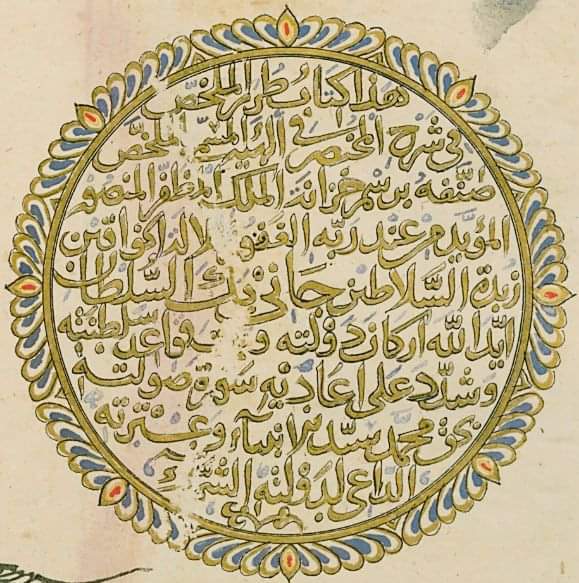 هذا كتاب طراز الملخص
في شرح المختصر في الهيئة المسمى الملخص
صنفه برسم خزانة الملك المظفر المنصور
المؤيد من عند ربه الغفور
زبدة السلاطين جاني بك السلطان
ابد الله اركان دولته و قواعد سلطنته
وشدد على اعاديه سورة صولته
بحق محمد سيد الانبياء وعترته
الداعي لدولته